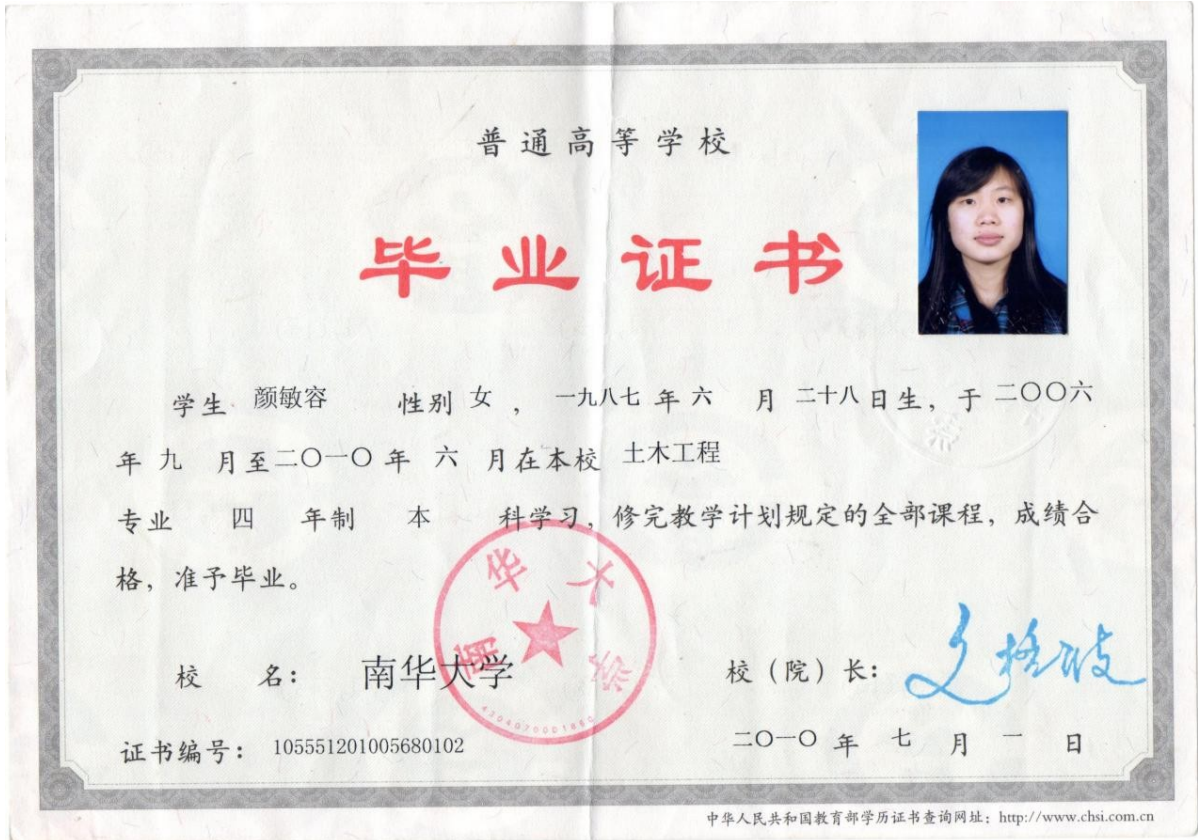 普通高等学校
毕业证书
学生 颜敏容 性别 女 ，一九八七 年 六 月 二十八 日生，于 二〇〇六
年 九 月至 二〇一〇 年 六 月在本校 土木工程
专业 四 年制 本 科学习，修完教学计划规定的全部课程，成绩合
格，准予毕业。
校 名： 南华大学 校（院）长：
南华大学
证书编号： 105551201005680102 二〇一〇 年 七 月 一 日
中华人民共和国教育部学历证书查询网址：http://www.chsi.com.cn